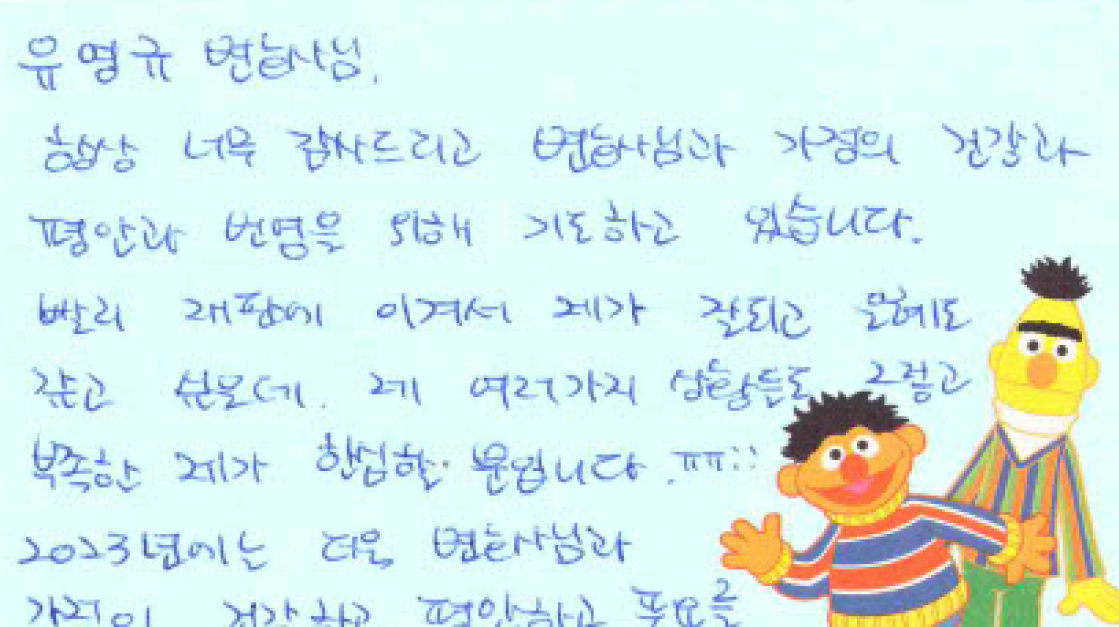 유영규 변호사님,
항상 너무 감사드리고 변호사님과 가정의 건강과
평안과 번영을 위해 기도하고 있습니다.
빨리 재판에 이겨서 제가 잘되고 은혜도
갚고 싶은데. 제 여러가지 상황들도 그렇고
부족한 제가 한심할 뿐입니다. ㅠㅠ;;
2023년에는 더욱 변호사님과
가정이 건강하고 평안하고 풍요를